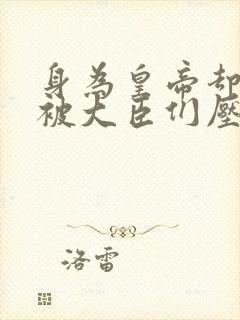 身為皇帝却
被大臣们壓
洛雷